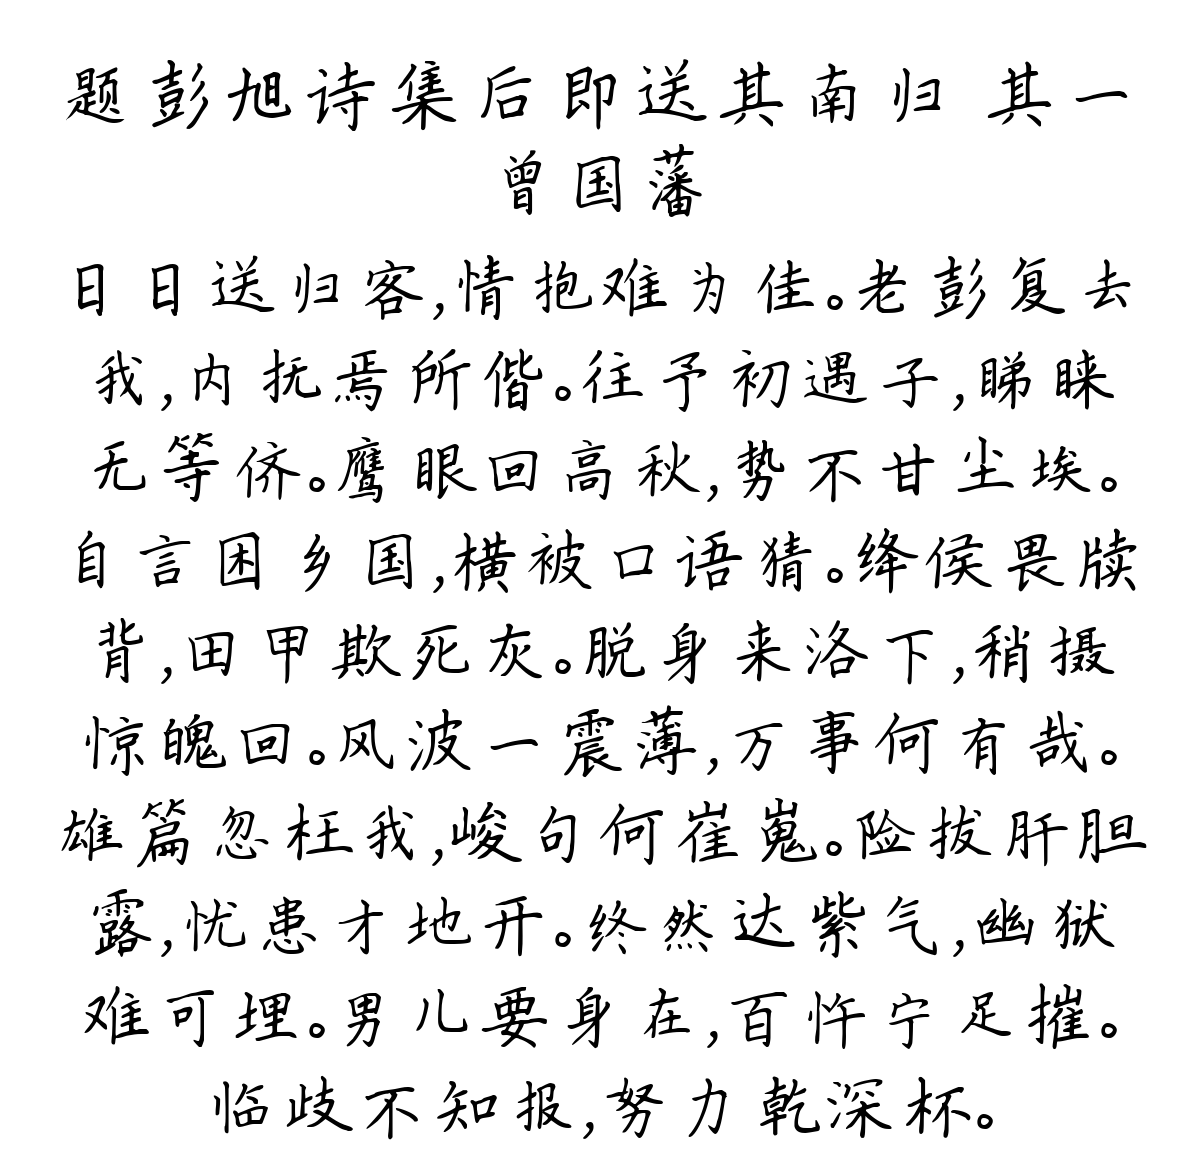 题彭旭诗集后即送其南归 其一
曾国藩
日日送归客,情抱难为佳。老彭复去
我,内抚焉所偕。往予初遇子,睇睐
无等侪。鹰眼回高秋,势不甘尘埃。
自言困乡国,横被口语猜。绛侯畏牍
背,田甲欺死灰。脱身来洛下,稍摄
惊魄回。风波一震薄,万事何有哉。
雄篇忽枉我,峻句何崔嵬。险拔肝胆
露,忧患才地开。终然达紫气,幽狱
难可埋。男儿要身在,百忤宁足摧。
临歧不知报,努力乾深杯。